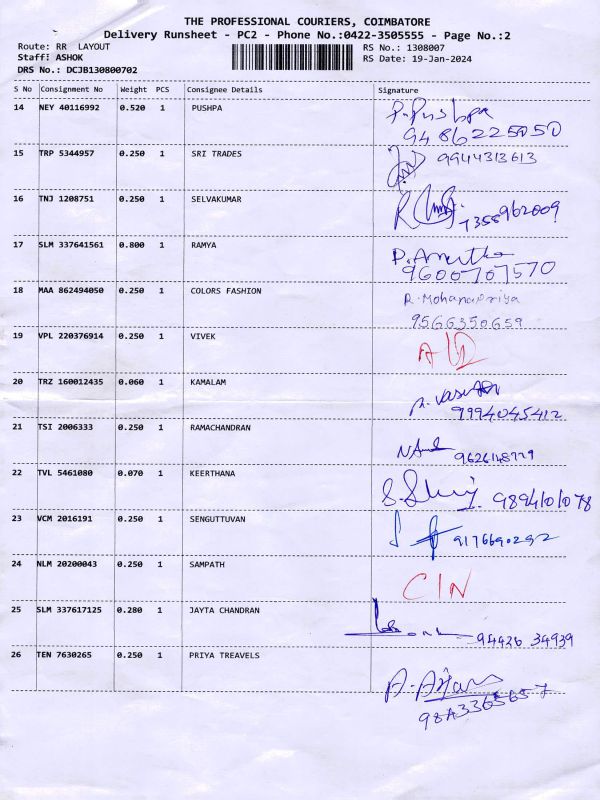 THE PROFESSIONAL COURIERS, COIMBATORE
Delivery Runsheet - PC2 - Phone No.:0422-3505555 - Page No.:2
Route: RR LAYOUT
RS No.: 1308007
Staff: ASHOK
RS Date: 19-Jan-2024
DRS No.: DCJB130800702
S No Consignment No Weight PCS Consignee Details Signature
14 NEY 40116992 0.520 1 PUSHPA P. Pushpa
9486225050
15 TRP 5344957 0.250 1 SRI TRADES 9944313613
16 TNJ 1208751 0.250 1 SELVAKUMAR
7358962009
17 SLM 337641561 0.800 1 RAMYA
9600707570
18 MAA 862494050 0.250 1 COLORS FASHION R. Mohanapriya
9566350659
19 VPL 220376914 0.250 1 VIVEK
20 TRZ 160012435 0.060 1 KAMALAM
9994045412
21 TSI 2006333 0.250 1 RAMACHANDRAN
22 TVL 5461080 0.070 1 KEERTHANA 9894101078
23 VCM 2016191 0.250 1 SENGUTTUVAN 9176690292
24 NLM 20200043 0.250 1 SAMPATH CIN
25 SLM 337617125 0.280 1 JAYTA CHANDRAN
94426 34939
26 TEN 7630265 0.250 1 PRIYA TREAVELS